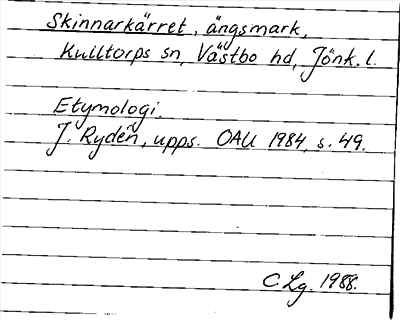 Skinnarkärret, ängsmark,
Kulltorps sn, Västbo hd, Jönk. l.
Etymologi.
J. Rydén, upps. OAU 1984, s. 49.
C Lg. 1988.